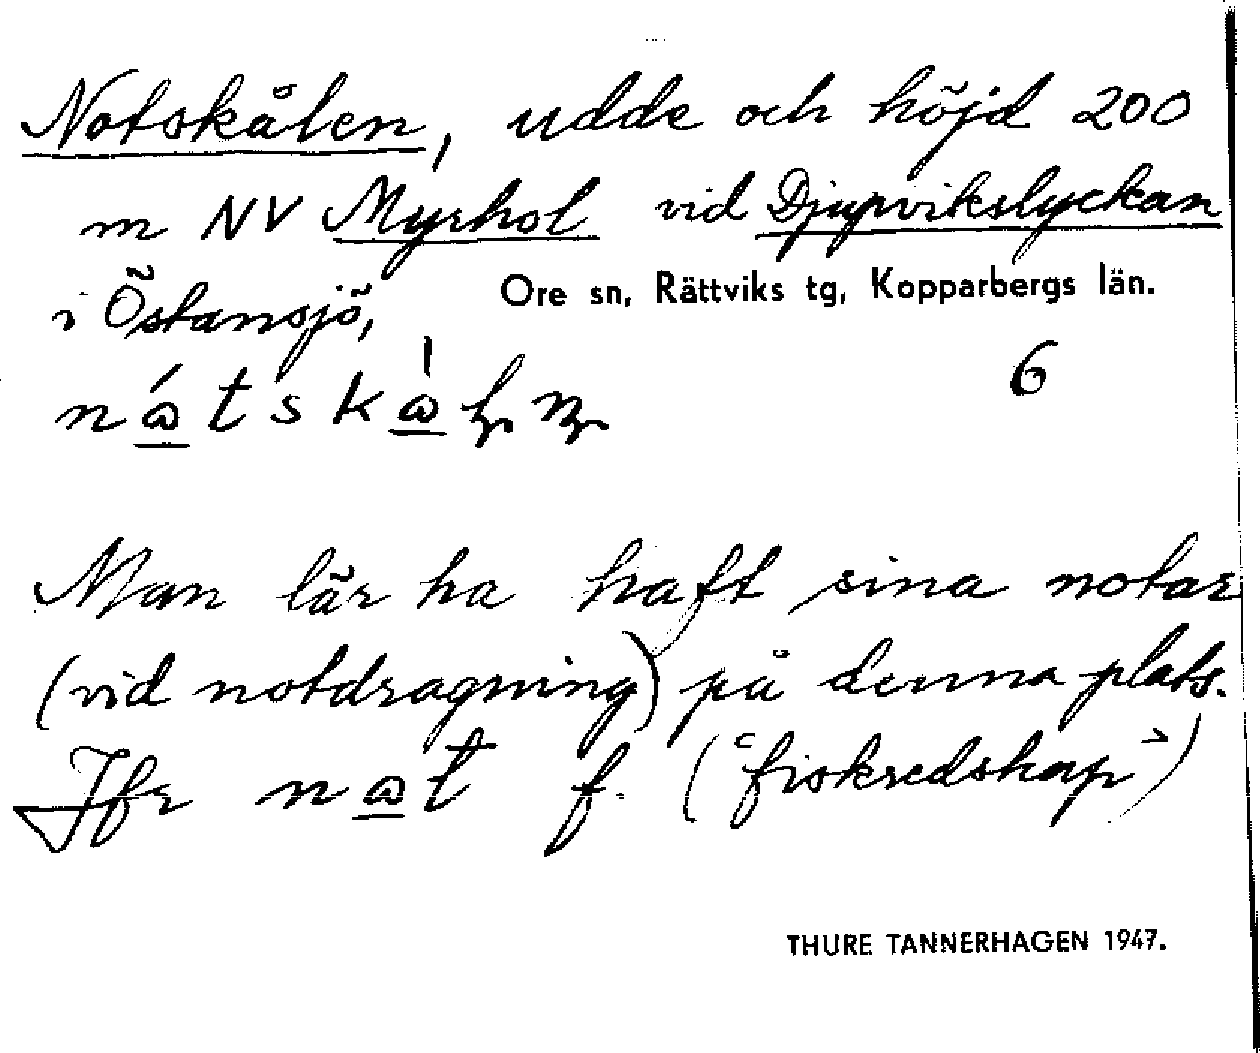 Notskålen, udde och höjd 200
m NV Myrhol vid Djupvikslyckan
i Östansjö, Ore sn, Rättviks tg, Kopparbergs län.
6
Man lär ha haft sina notar
(vid notdragning) på denna plats.
Jfr f. ("fiskredskap")
THURE TANNERHAGEN 1947.